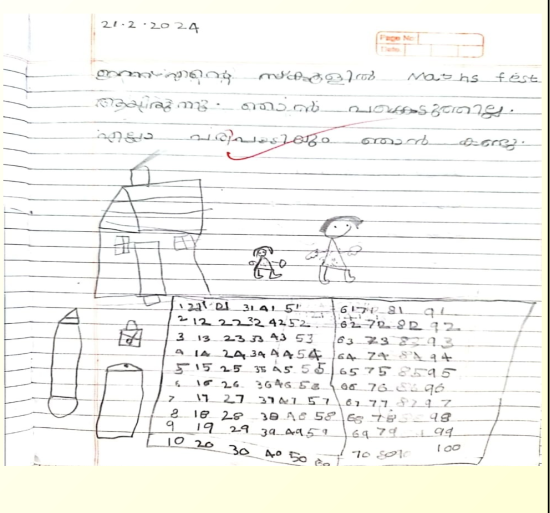 21.2.2024
Page No
Date
ഇന്ന് എന്റെ സ്കൂളിൽ Maths fest
ആയിരുന്നു. ഞാൻ പങ്കെടുത്തില്ല.
എല്ലാ പരിപാടിയും ഞാൻ കണ്ടു.
1 11 21 31 41 51 61 71 81 91
2 12 22 32 42 52 62 72 82 92
3 13 23 33 43 53 63 73 83 93
4 14 24 34 44 54 64 74 84 94
5 15 25 35 45 55 65 75 85 95
6 16 26 36 46 56 66 76 86 96
7 17 27 37 47 57 67 77 87 97
8 18 28 38 48 58 68 78 98
9 19 29 39 49 59 69 79 99
10 20 30 40 50 60 70 80 100